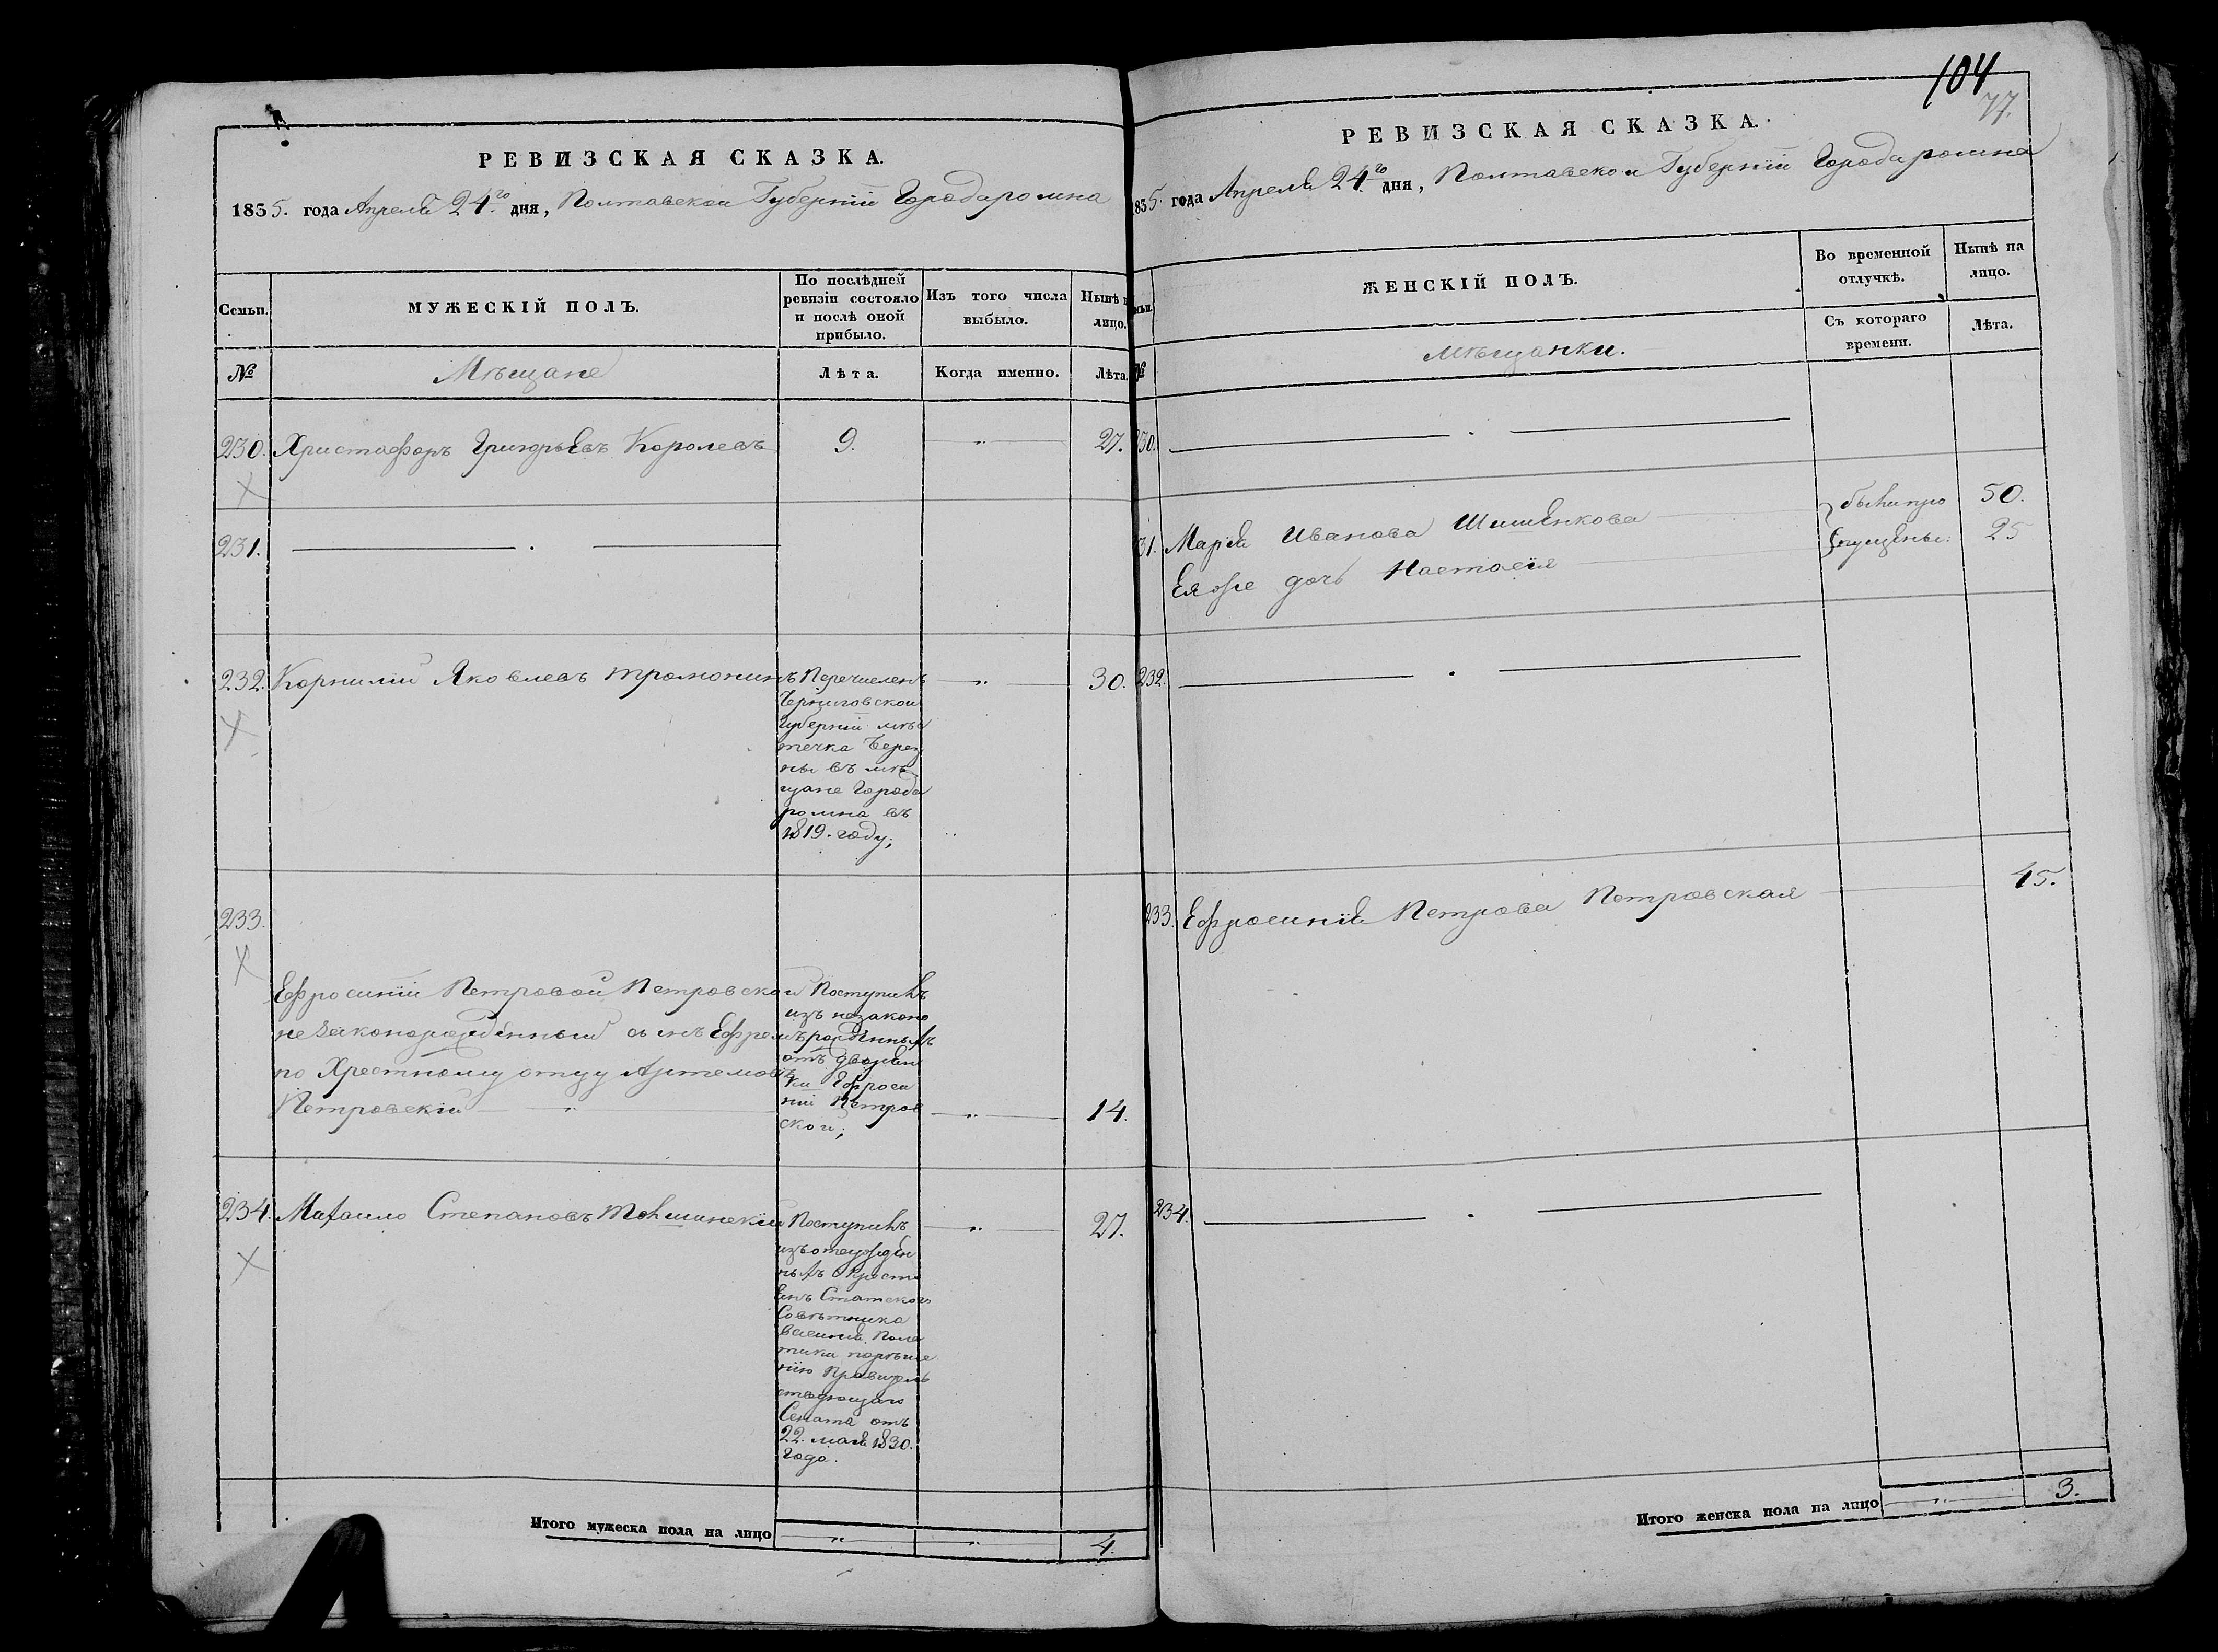 РЕВИЗСКАЯ СКАЗКА.
1835. года Апреля 24.го дня, Полтавской Губерніи Города ромна
Семьи.
МУЖЕСКІЙ ПОЛЪ.
По послѣдней ревизіи состояло и послѣ оной прибыло.
Изъ того числа выбыло.
Нынѣ н
лицо.
№
Мѣщане
Лѣта.
Когда именно.
Лѣта.
230. Христофоръ Григорьевъ Королевъ 9. " 27.
231.
232. Корнилій Яковлевъ тромонинъ Перечисленъ " 30.
Черниговской
Губерніи мѣс
течка Берез
ны въ мѣ
щане Города
ромна въ
1819. году;
233.
Ефросиніи Петровой Петровской Поступилъ
незаконорожденный сынъ Ефремъ
изъ незаконо
рожденныхъ
отъ дворян
по Хрестному отцу Артемовъ
ки Ефроси
Петровскій "
ніи Петров " 14.
ской;
234. Михаило Степановъ Поступилъ " 27.
изъ отсужден
ныхъ Крестья
Статскаго
Совѣтника
Василія Поле
тики порѣше
нію Правитель
ствующаго
Сената отъ
22. мая 1830.
года.
Итого мужеска пола на лицо " " 4.
104
77.
РЕВИЗСКАЯ СКАЗКА.
1835. года Апреля 24.го дня, Полтавской Губерніи Города ромна
мьи.
ЖЕНСКІЙ ПОЛЪ.
Во временной отлучкѣ.
Нынѣ на лицо.
Съ котораго времени.
Лѣта.
№
Мѣщанки.
230.
31. Марія Иванова Шишенкова были про 50.
Ея же дочь Настасія пущены: 25
232.
233. Ефросинія Петрова Петровская 45.
234.
Итого женска пола на лицо " 3.